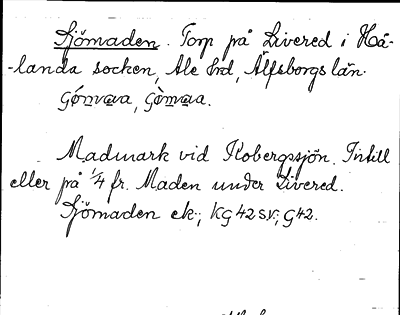 Sjömaden. Torp på Livered i Hå-
-landa socken, Ale hd, Älfsborgs län.
Madmark vid Kobergssjön. Intill
eller på 1/4 fr. Maden under Livered.
Sjömaden ek.; KG 42 sv.; G 42.